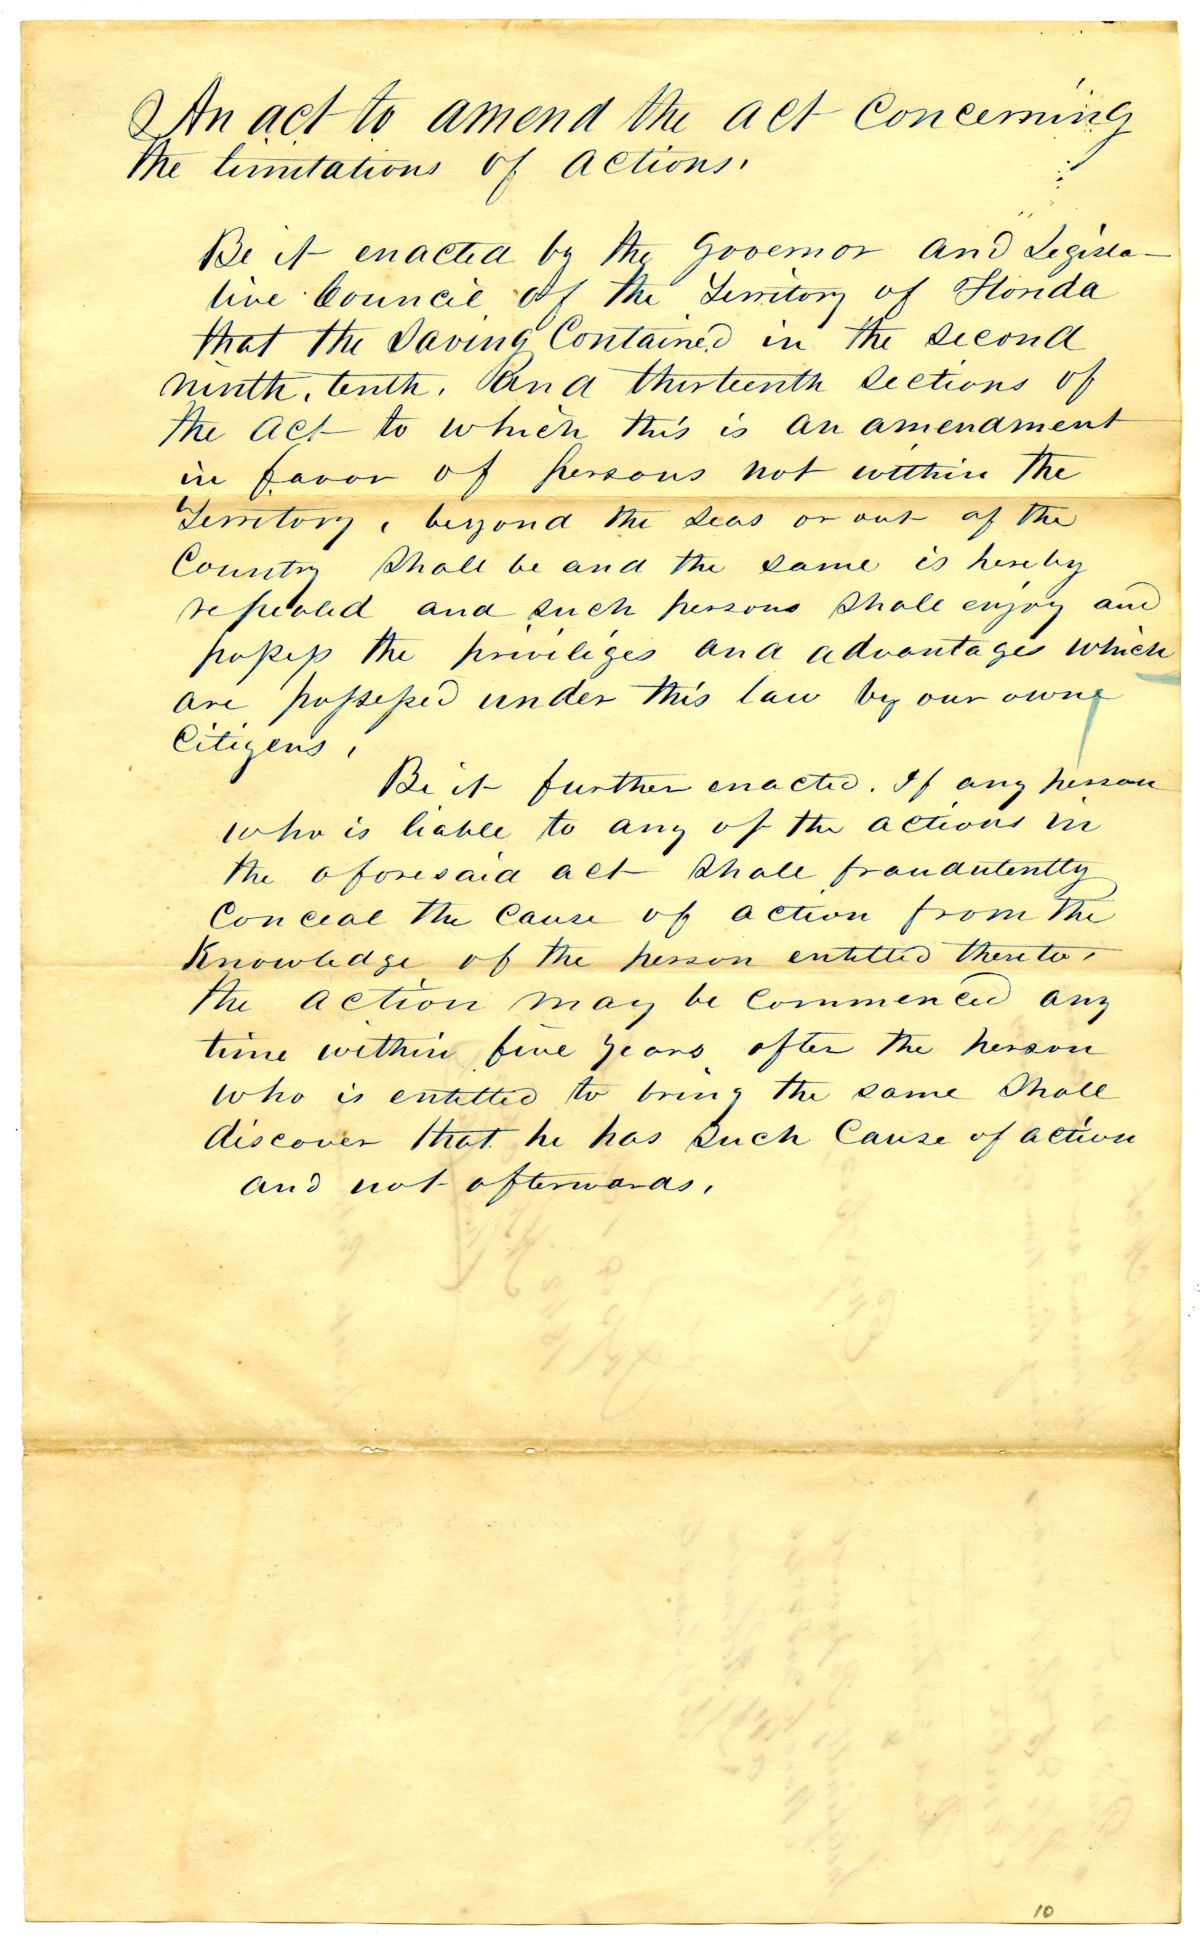 An act to amend the act Concerning
the limitations of actions.
Be it enacted by the Governor and Legisla-
tive Council of the Territory of Florida
that the Saving Contained in the second
ninth, tenth, and thirteenth sections of
the act to which this is an amendment
in favor of persons not within the
Territory, beyond the seas or out of the
Country shall be and the same is hereby
repealed and such persons shall enjoy and
possess the priviliges and advantages which
are possessed under this law by our owne
Citizens.
Be it further enacted. If any person
who is liable to any of the actions in
the aforesaid act shall fraudutently
Conceal the Cause of action from the
Knowledge of the person entitled thereto,
the action may be Commenced any
time within five years after the person
who is entitled to bring the same shall
discover that he has such Cause of action
and not afterwards.
10